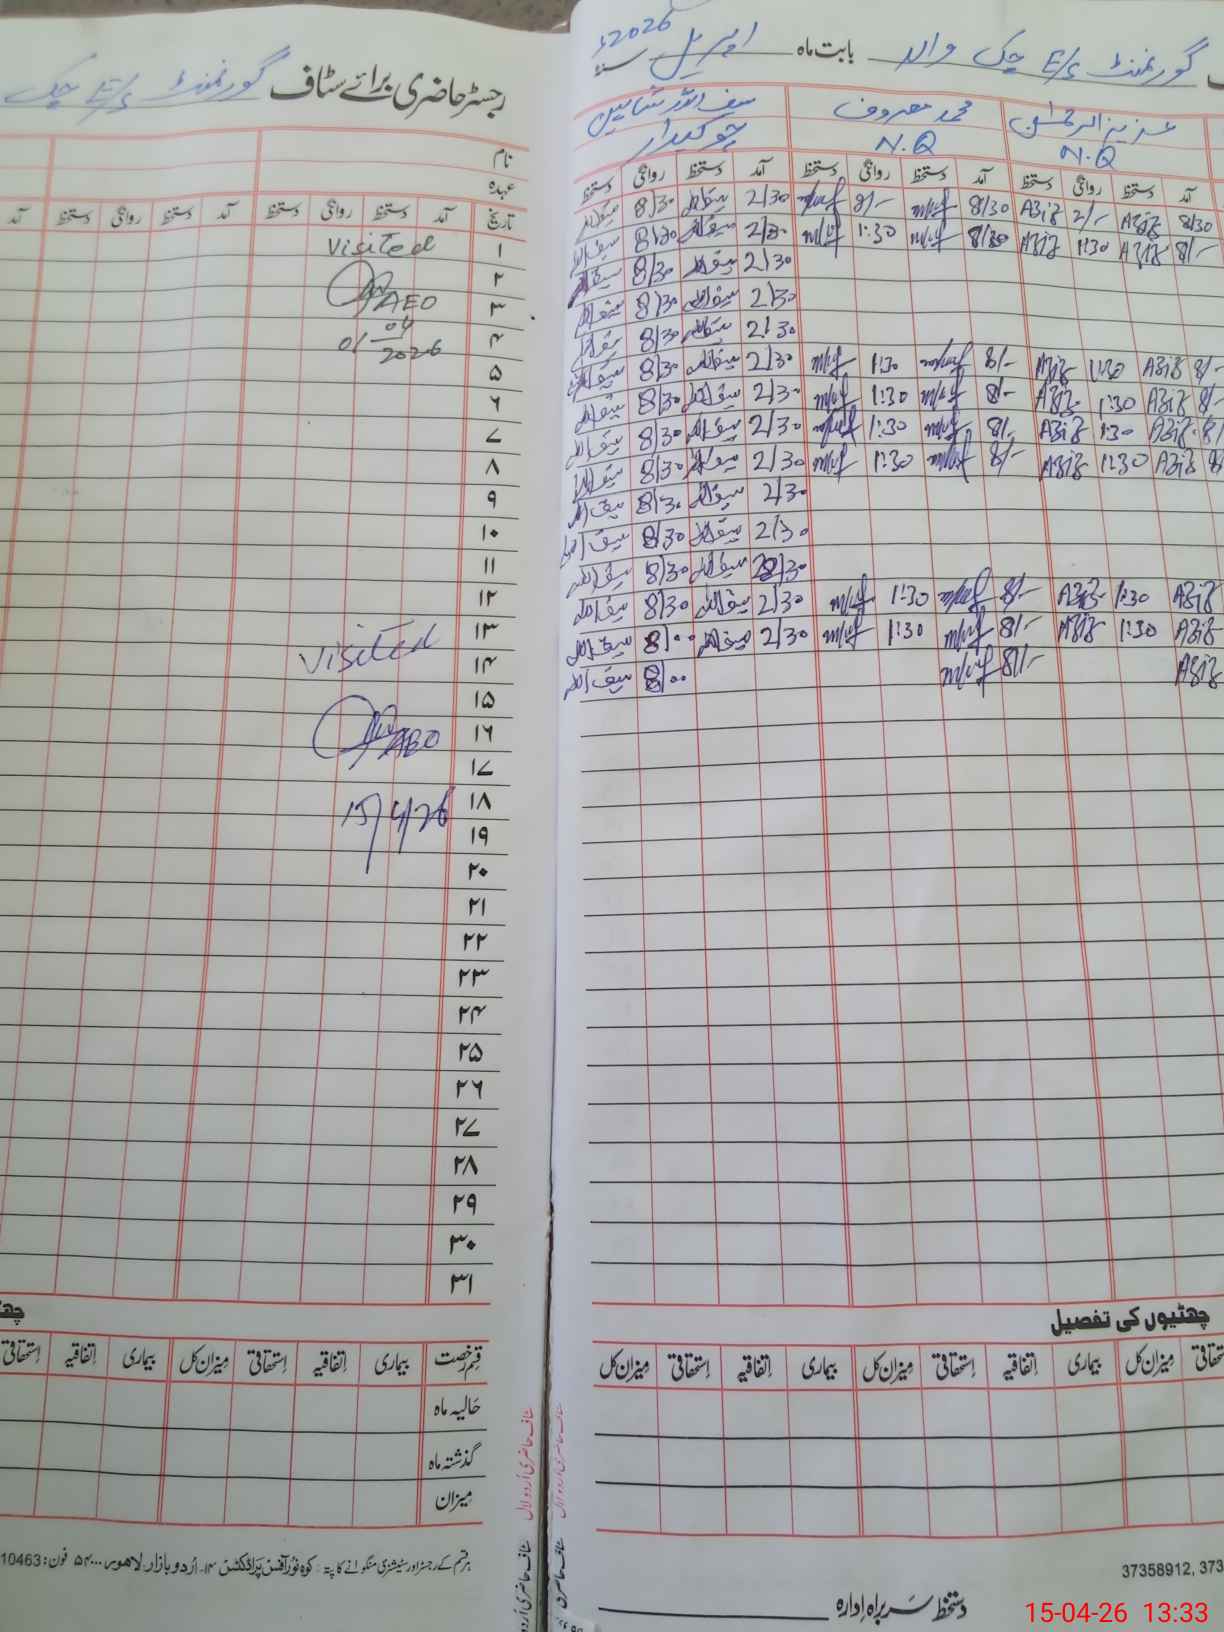 رجسٹر حاضری برائے سٹاف گورنمنٹ E/S چک
نام
عہدہ
تاریخ آمد دستخط روانگی دستخط آمد دستخط روانگی دستخط آمد
۱
۲
۳
۴
۵
۶
۷
۸
۹
۱۰
۱۱
۱۲
۱۳
۱۴
۱۵
۱۶
۱۷
۱۸
۱۹
۲۰
۲۱
۲۲
۲۳
۲۴
۲۵
۲۶
۲۷
۲۸
۲۹
۳۰
۳۱
Visited
AEO
01/04/2026
Visited
AEO
15/4/26
قسم رخصت بیماری اتفاقیہ استحقاقی میزان کل بیماری اتفاقیہ استحقاقی
حالیہ ماہ
گذشتہ ماہ
میزان
گورنمنٹ E/S چک والہ بابت ماہ اپریل سنہ 2026ء
عزیز الرحمٰن محمد معروف سیف اللہ شاہین
N.Q N.Q چوکیدار
آمد دستخط روانگی دستخط آمد دستخط روانگی دستخط آمد دستخط روانگی دستخط
8/30 Aziz 2/- Aziz 8/30 8/- 2/30 سیف اللہ 8/30 سیف اللہ
8/- Aziz 1:30 Aziz 8/30 1:30 2/30 سیف اللہ 8/30 سیف اللہ
2/30 سیف اللہ 8/30 سیف اللہ
2/30 سیف اللہ 8/30 سیف اللہ
2/30 سیف اللہ 8/30 سیف اللہ
8/- Aziz 1:30 Aziz 8/- 1:30 2/30 سیف اللہ 8/30 سیف اللہ
8/- Aziz 1:30 Aziz 8/- 1:30 2/30 سیف اللہ 8/30 سیف اللہ
8/ Aziz 1:30 Aziz 8/- 1:30 2/30 سیف اللہ 8/30 سیف اللہ
8 Aziz 1:30 Aziz 8/- 1:30 2/30 سیف اللہ 8/30 سیف اللہ
2/30 سیف اللہ 8/30 سیف اللہ
2/30 سیف اللہ 8/30 سیف اللہ
2/30 سیف اللہ 8/30 سیف اللہ
Aziz 1:30 Aziz 8/- 1:30 2/30 سیف اللہ 8/30 سیف اللہ
Aziz 1:30 Aziz 8/- 1:30 2/30 سیف اللہ 8/00 سیف اللہ
Aziz 8/- 8/00 سیف اللہ
چھٹیوں کی تفصیل
میزان کل بیماری اتفاقیہ استحقاقی میزان کل بیماری اتفاقیہ استحقاقی میزان کل
37358912, 373
دستخط سربراہ ادارہ
سٹاف حاضری اردو لال
15-04-26 13:33